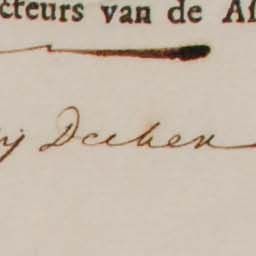 cteurs van de As
ij Decken